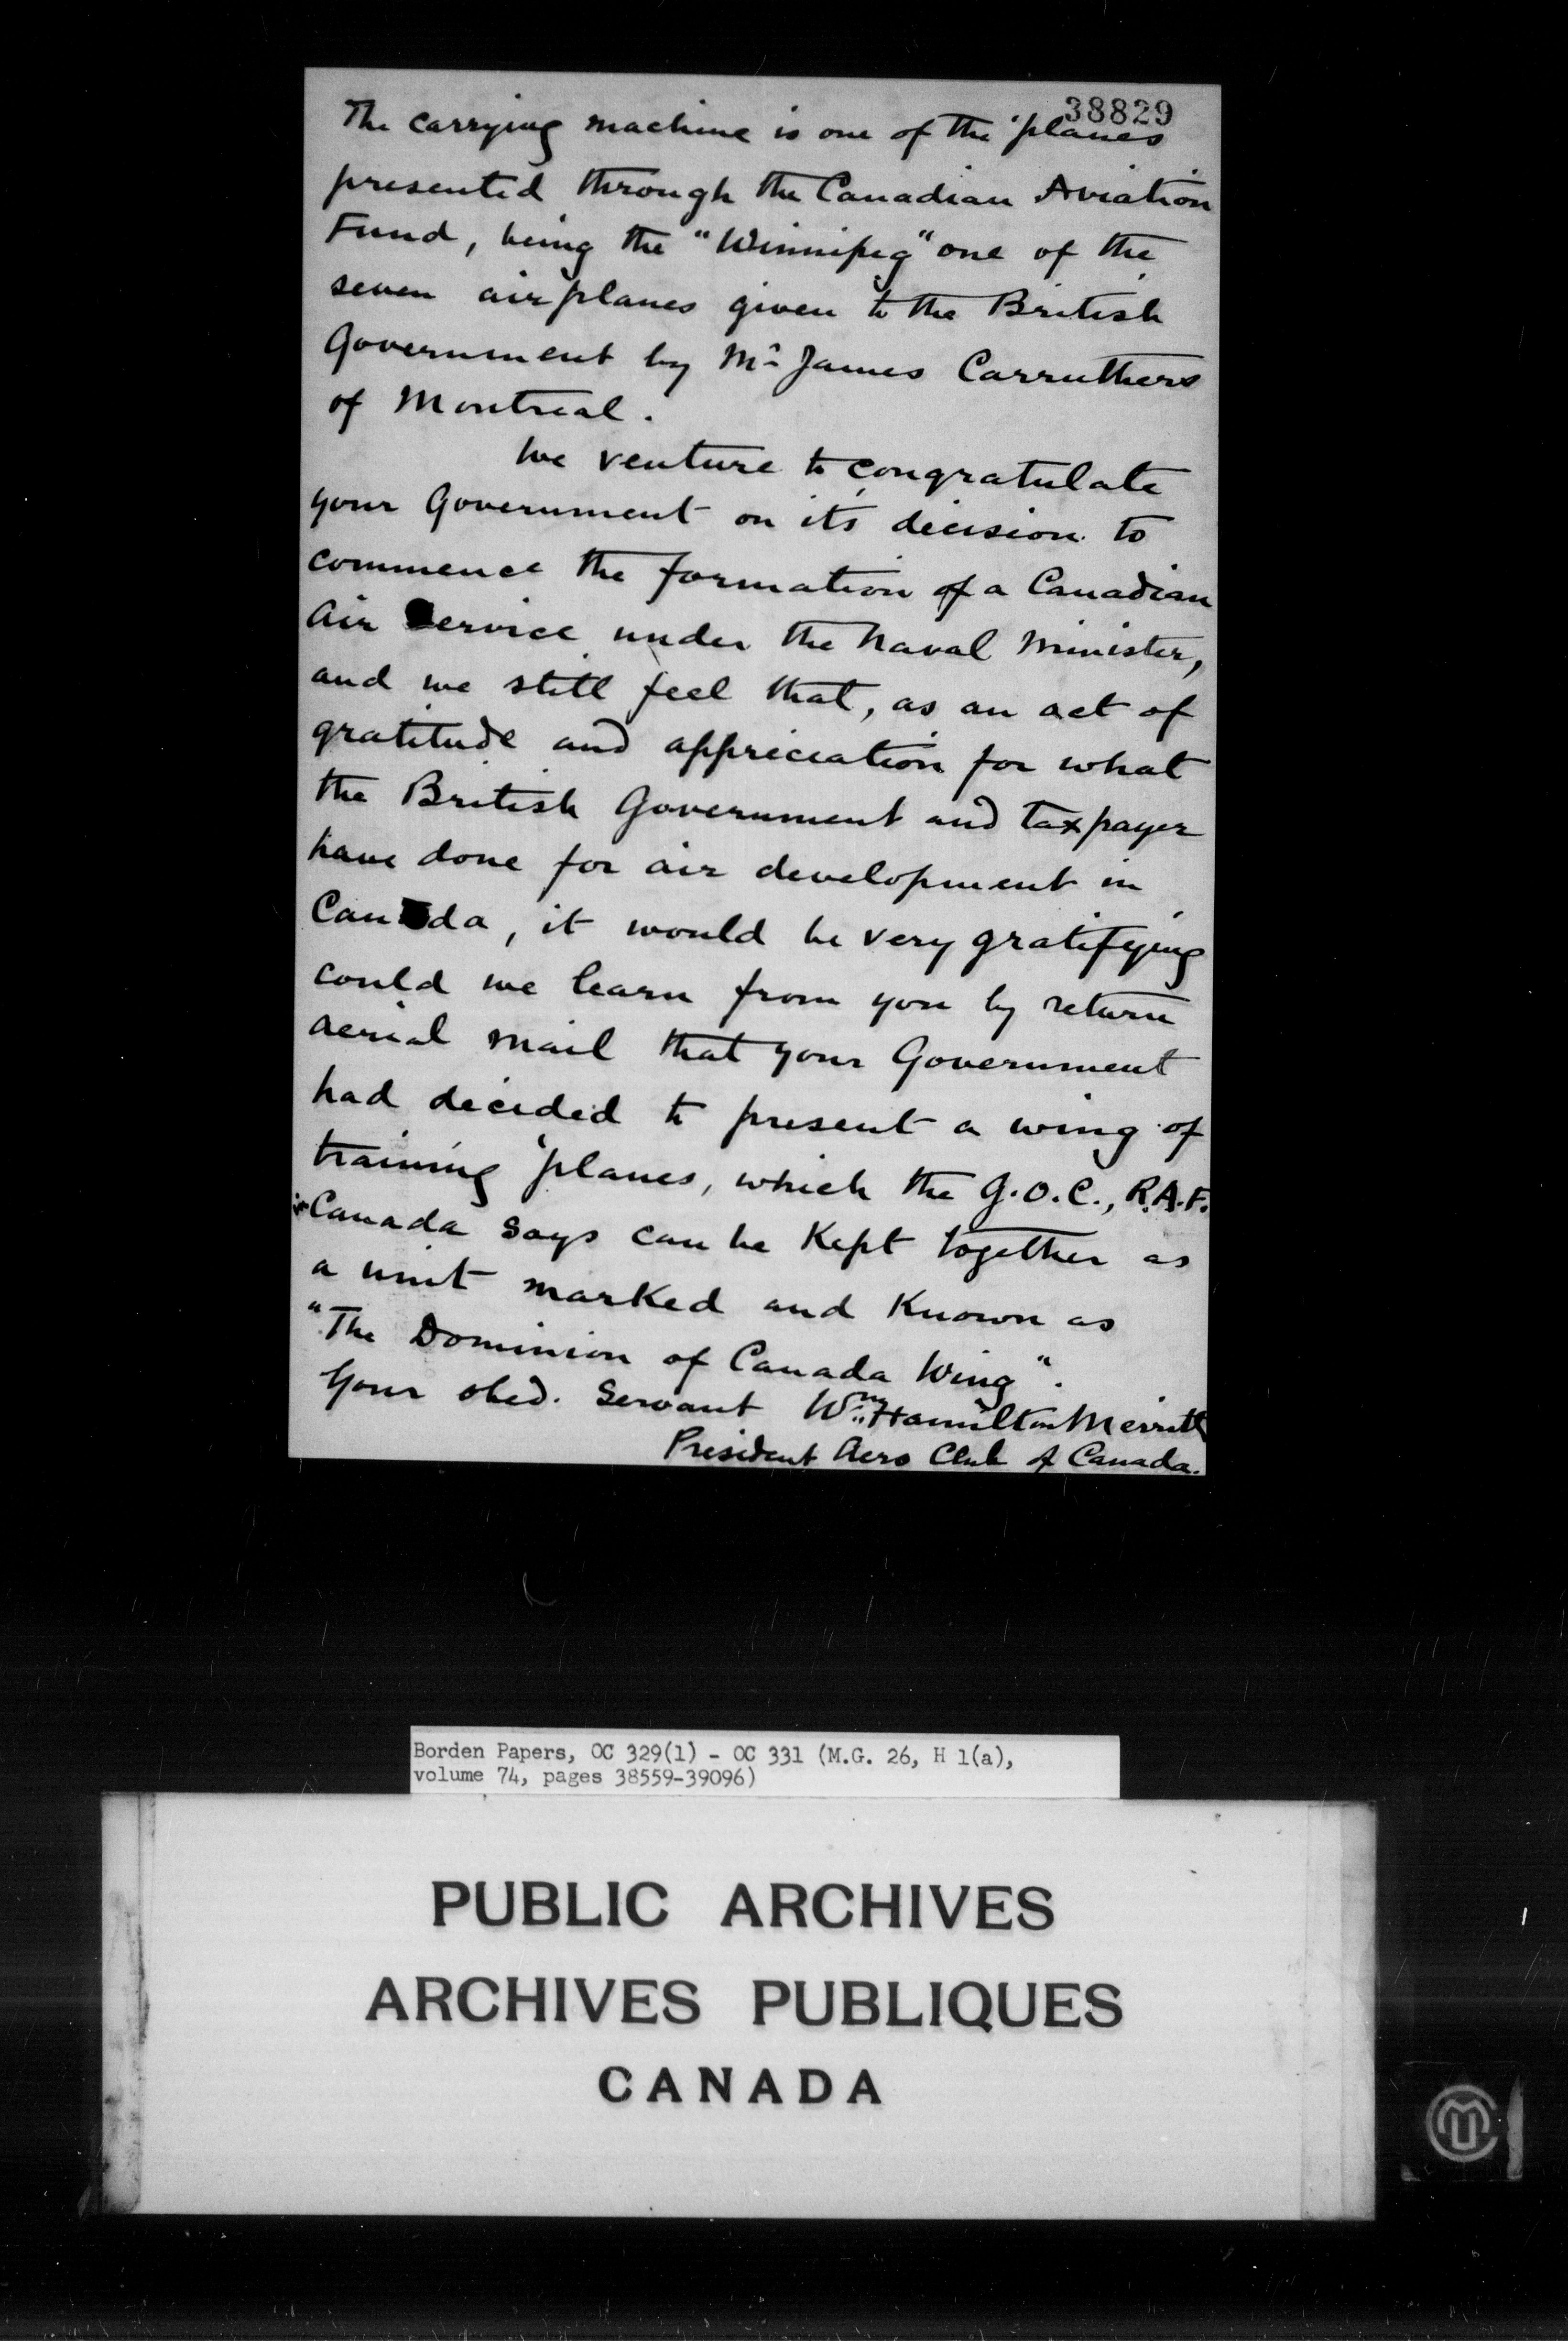 38829
The carrying machine is one of the 'planes
presented through the Canadian Aviation
Fund, being the "Winnipeg" one of the
seven airplanes given to the British
Government by Mr James Carruthers
of Montreal.
We venture to congratulate
your Government on it's decision to
commence the formation of a Canadian
Air Service under the Naval Minister,
and we still feel that, as an act of
gratitude and appreciation for what
the British Government and taxpayer
have done for air development in
Canada, it would be very gratifying
could we learn from you by return
aerial mail that your Government
had decided to present a wing of
training 'planes, which the G.O.C., R.A.F.
in Canada says can be kept together as
a unit marked and known as
"The Dominion of Canada Wing".
Your obed. Servant Wm Hamilton Merritt
President Aero Club of Canada.
Borden Papers, OC 329(1) - OC 331 (M.G. 26, H 1(a),
volume 74, pages 38559-39096)
PUBLIC ARCHIVES
ARCHIVES PUBLIQUES
CANADA